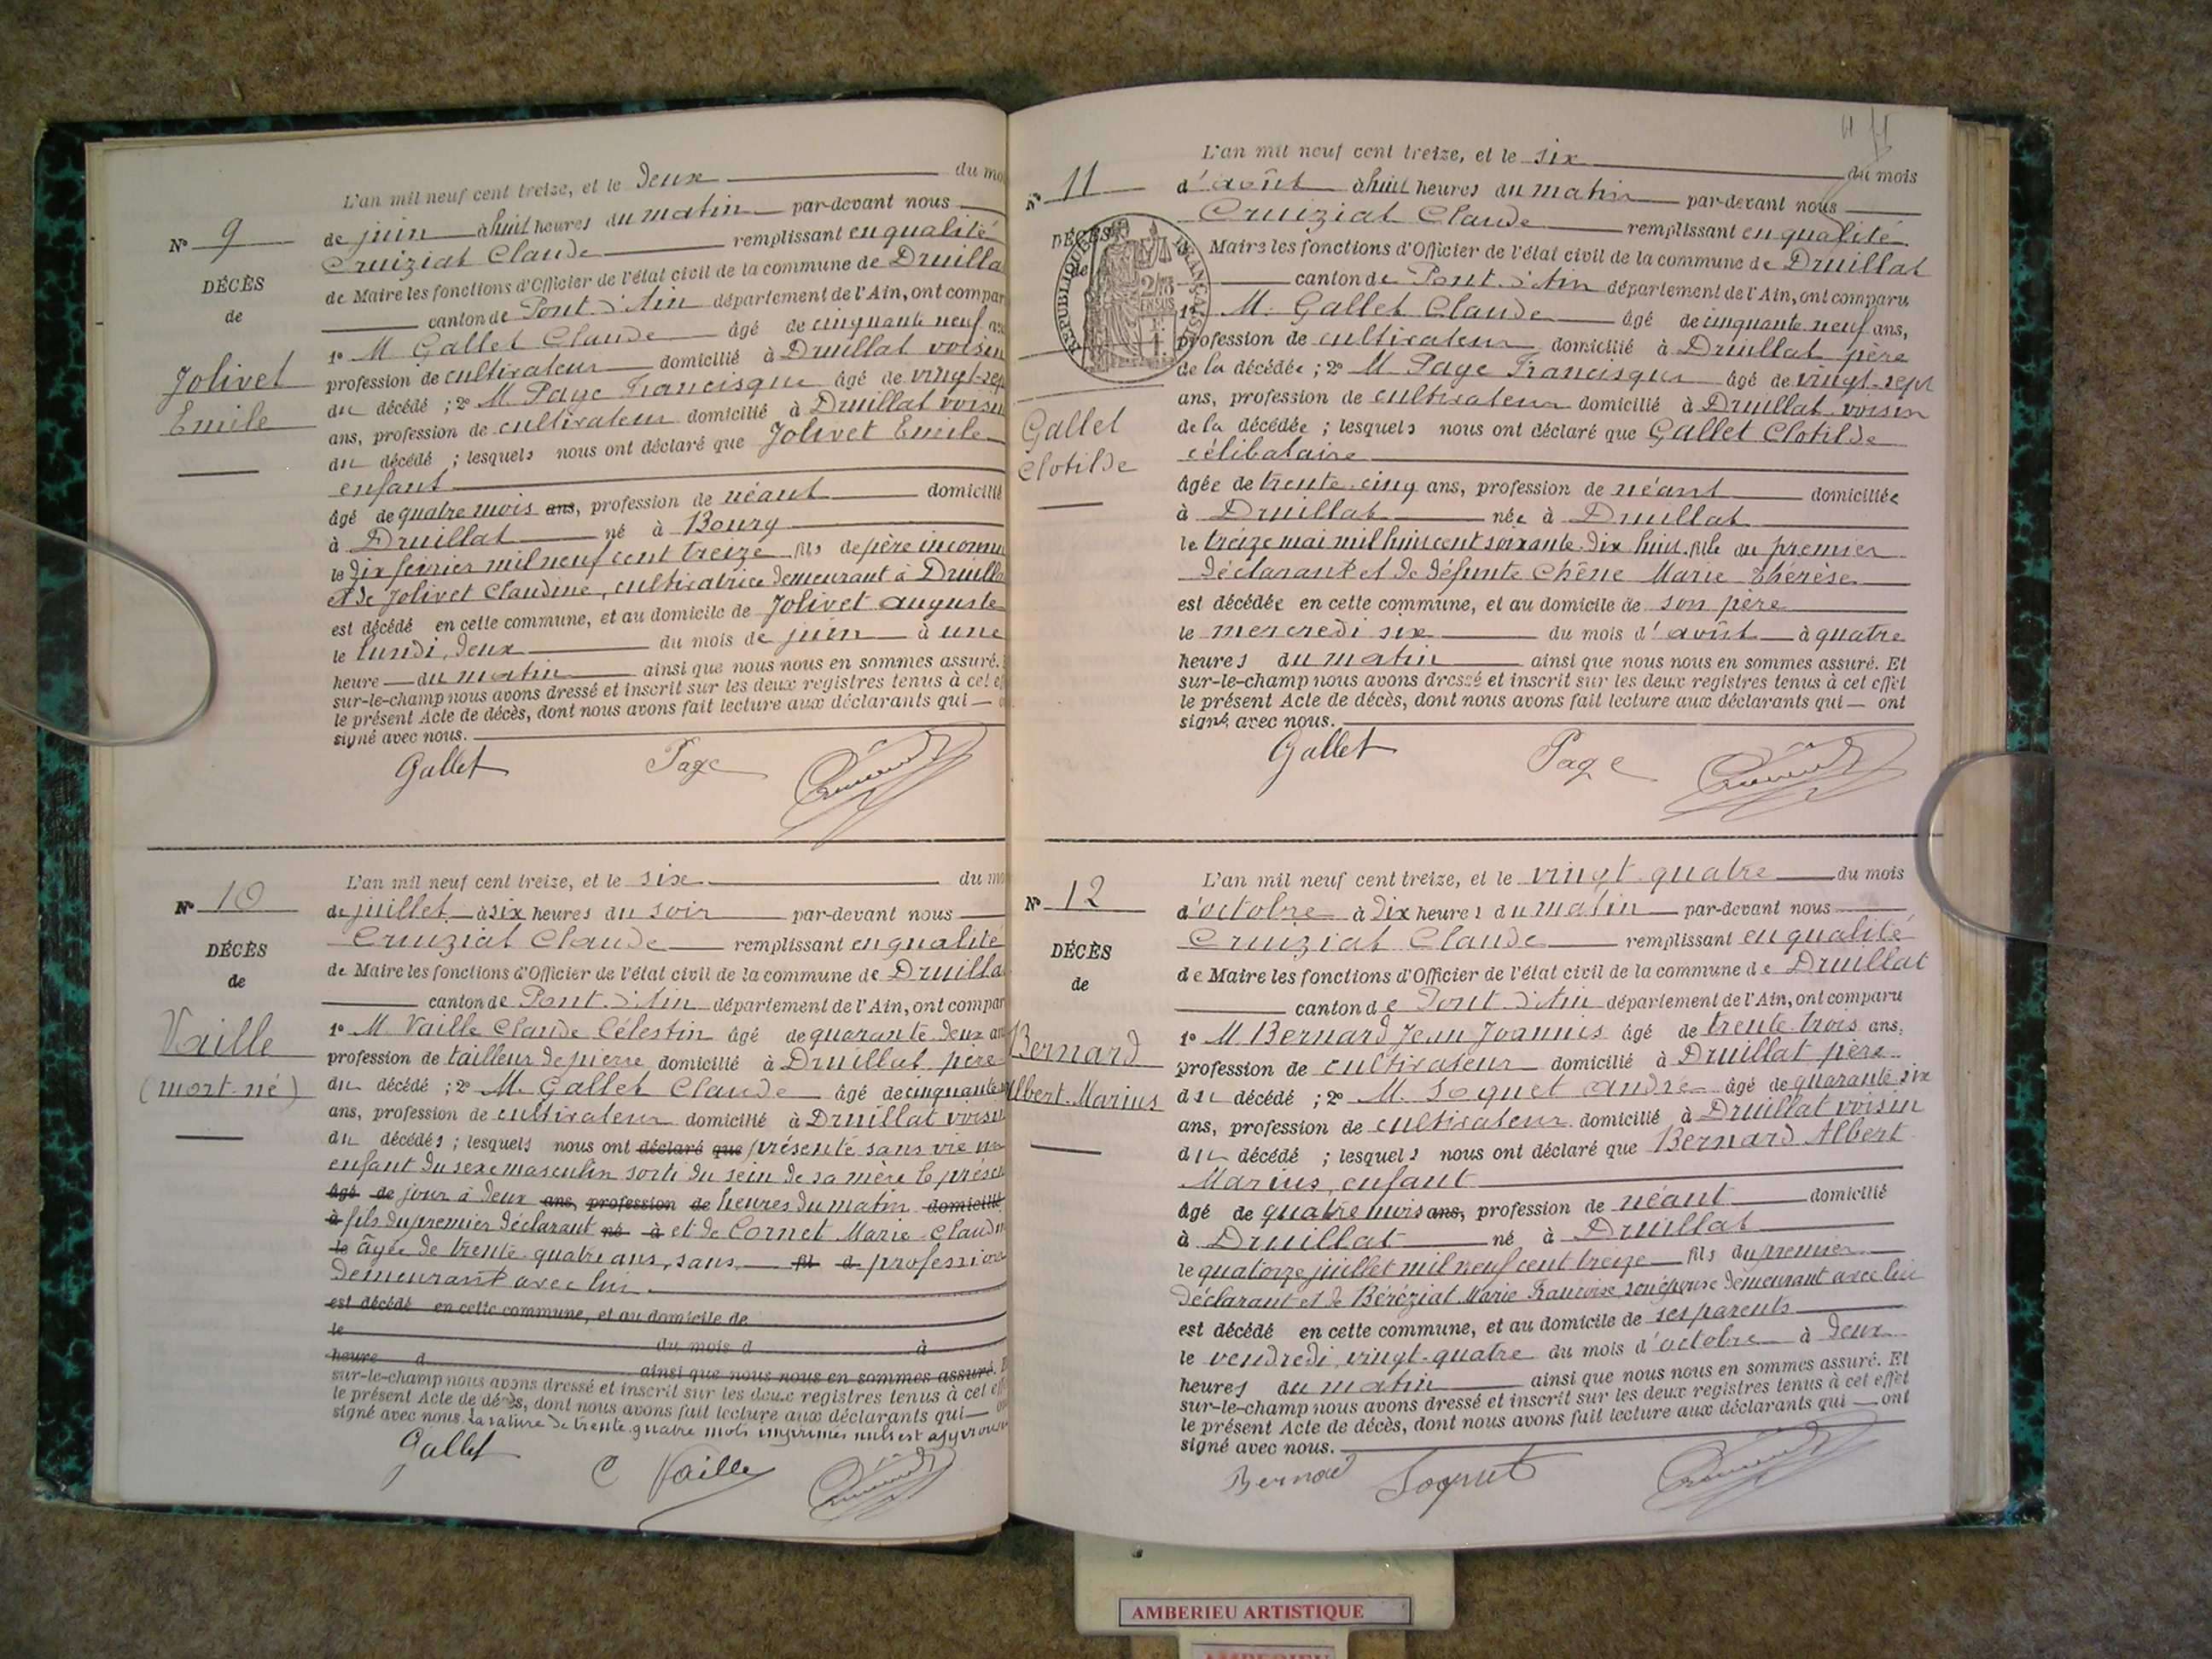 L'an mil neuf cent treize, et le deux du mo
Nº 9
de juin à huit heures du matin par-devant nous
Cruiziat Claude remplissant en qualité
DÉCÈS
de Maire les fonctions d'Officier de l'état civil de la commune de Druilla
de
canton de Pont-d'Ain département de l'Ain, ont compar
1º M Gallet Claude âgé de cinquante neuf an
Jolivet
profession de cultivateur domicilié à Druillat voisin
du décédé ; 2º M. Page Francisque âgé de vingt-sep
Emile
ans, profession de cultivateur domicilié à Druillat voisin
du décédé ; lesquels nous ont déclaré que Jolivet Emile
enfant
âgé de quatre mois ans, profession de néant domicilié
à Druillat né à Bourg
le dix février mil neuf cent treize fils de père inconnu
et de Jolivet Claudine, cultivatrice demeurant à Druilla
est décédé en cette commune, et au domicile de Jolivet Auguste
le lundi, deux du mois de juin à une
heure du matin ainsi que nous nous en sommes assuré.
sur-le-champ nous avons dressé et inscrit sur les deux registres tenus à cet e
le présent Acte de décès, dont nous avons fait lecture aux déclarants qui
signé avec nous.
Gallet Page
L'an mil neuf cent treize, et le six du m
Nº 10
de juillet à six heures du soir par-devant nous
Cruiziat Claude remplissant en qualité
DÉCÈS
de Maire les fonctions d'Officier de l'état civil de la commune de Druilla
de
canton de Pont-d'Ain département de l'Ain, ont compar
1º M. Vaille Claude Célestin âgé de quarante-deux an
Vaille
profession de tailleur de pierre domicilié à Druillat père
(mort-né)
du décédé ; 2º M. Gallet Claude âgé de cinquante
ans, profession de cultivateur domicilié à Druillat voisin
du décédés ; lesquels nous ont déclaré que présenté sans vie un
enfant du sexe masculin sorti du sein de sa mère le présen
âgé de jour à deux ans, profession de heures du matin domicilié
à fils du premier déclarant né à et de Cornet Marie-Claudin
le âgée de trente-quatre ans, sans fil d profession
demeurant avec lui
est décédé en cette commune, et au domicile de
le du mois d à
heure d ainsi que nous nous en sommes assuré. E
sur-le-champ nous avons dressé et inscrit sur les deux registres tenus à cet eff
le présent Acte de décès, dont nous avons fait lecture aux déclarants qui on
signé avec nous. La rature de trente-quatre mots imprimés nuls est approuv
Gallet C Vaille
L'an mil neuf cent treize, et le six du mois
Nº 11
d'août à huit heures du matin par-devant nous
Cruiziat Claude remplissant en qualité
DÉCÈS
de
RÉPUBLIQUE FRANÇAISE
2/10 EN SUS
Maire les fonctions d'Officier de l'état civil de la commune de Druillat
canton de Pont-d'Ain département de l'Ain, ont comparu
1º M. Gallet Claude âgé de cinquante neuf ans,
profession de cultivateur domicilié à Druillat père
de la décédée ; 2º M. Page Francisque âgé de vingt-sept
ans, profession de cultivateur domicilié à Druillat voisin
Gallet
de la décédée ; lesquels nous ont déclaré que Gallet Clotilde
Clotilde
célibataire
âgée de trente-cinq ans, profession de néant domiciliée
à Druillat née à Druillat
le treize mai mil huit cent soixante-dix huit fille du premier
déclarant et de défunte Chêne Marie-Thérèse
est décédée en cette commune, et au domicile de son père
le mercredi six du mois d'août à quatre
heures du matin ainsi que nous nous en sommes assuré. Et
sur-le-champ nous avons dressé et inscrit sur les deux registres tenus à cet effet
le présent Acte de décès, dont nous avons fait lecture aux déclarants qui ont
signé avec nous.
Gallet Page
L'an mil neuf cent treize, et le vingt-quatre du mois
Nº 12
d'octobre à dix heures du matin par-devant nous
Cruiziat Claude remplissant en qualité
DÉCÈS
de Maire les fonctions d'Officier de l'état civil de la commune de Druillat
de
canton de Pont-d'Ain département de l'Ain, ont comparu
1º M Bernard Jean Joannis âgé de trente-trois ans,
Bernard
profession de cultivateur domicilié à Druillat père
Albert-Marius
du décédé ; 2º M. Soquet André âgé de quarante-six
ans, profession de cultivateur domicilié à Druillat voisin
du décédé ; lesquels nous ont déclaré que Bernard Albert
Marius, enfant
âgé de quatre mois ans, profession de néant domicilié
à Druillat né à Druillat
le quatorze juillet mil neuf cent treize fils du premier
déclarant et de Béréziat Marie Françoise son épouse demeurant avec lui
est décédé en cette commune, et au domicile de ses parents
le vendredi, vingt-quatre du mois d'octobre à deux
heures du matin ainsi que nous nous en sommes assuré. Et
sur-le-champ nous avons dressé et inscrit sur les deux registres tenus à cet effet
le présent Acte de décès, dont nous avons fait lecture aux déclarants qui ont
signé avec nous.
Bernard Soquet
AMBERIEU ARTISTIQUE
AMBERIEU